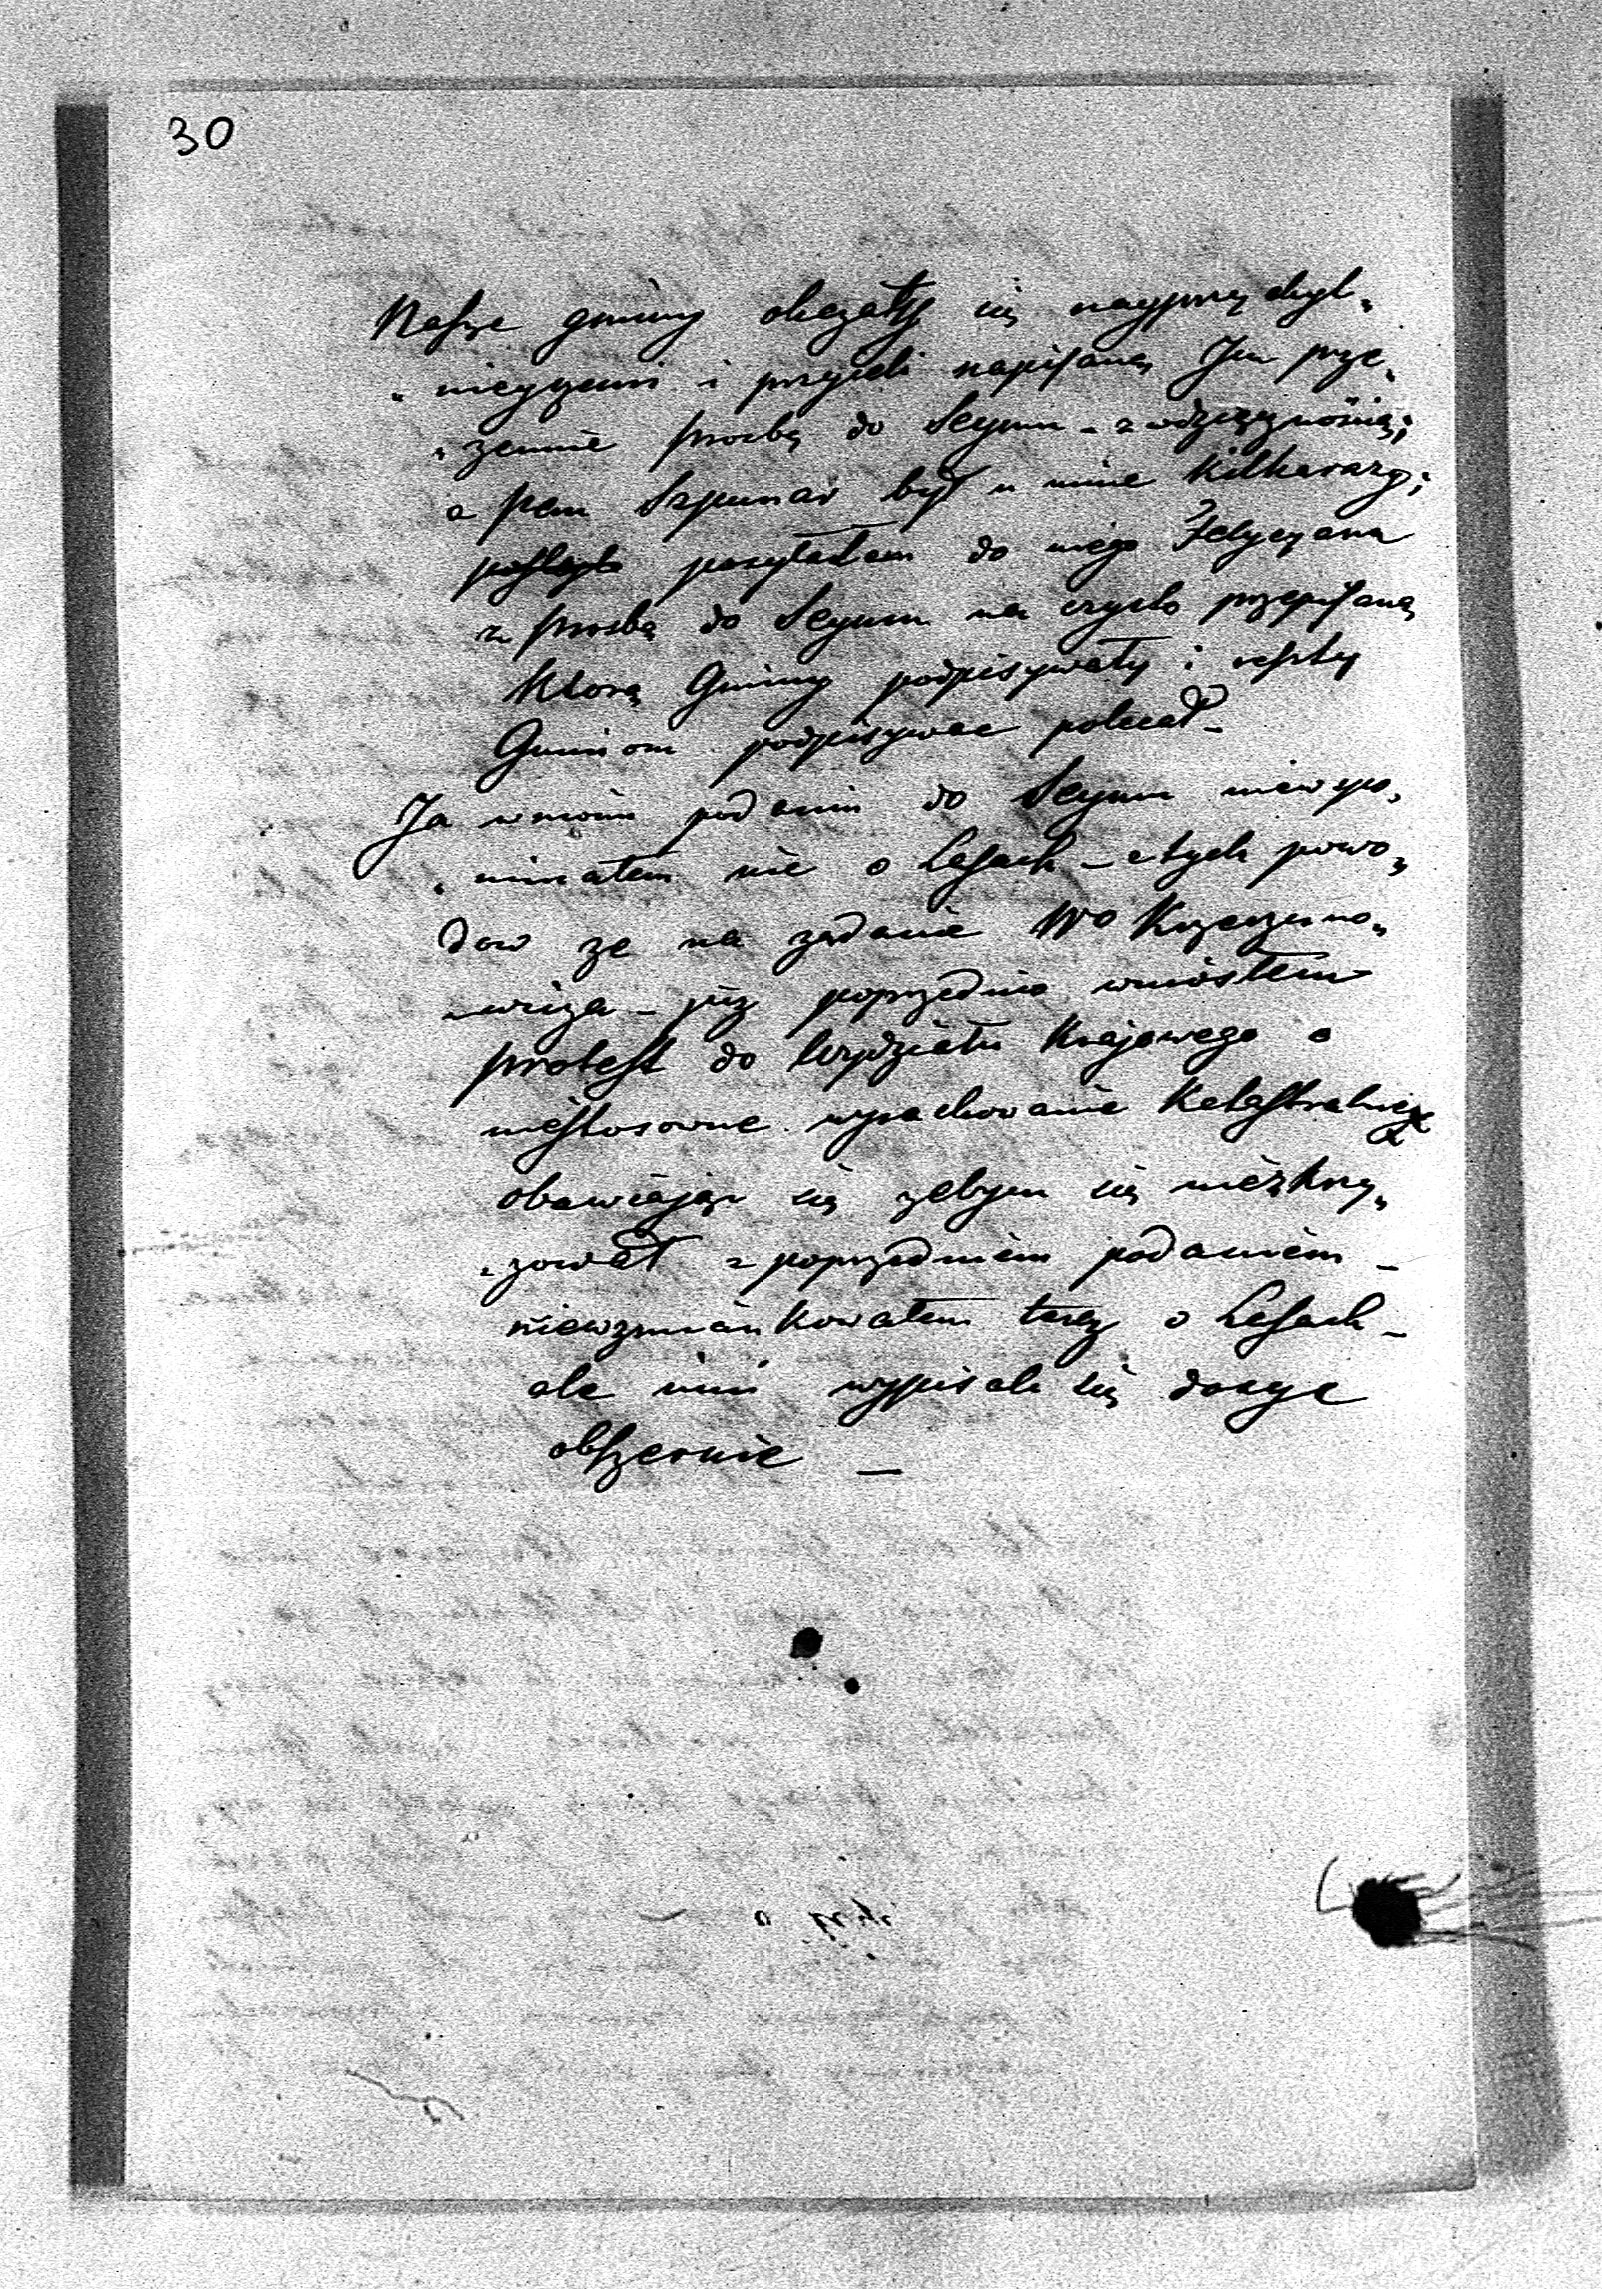 30
Nasze gminy okazały się nayprzychyl„
„nieyszemi i przyieli napisaną Im prze„
„zemnie prosbę do Seymu – z wdzięcznością;
a pan Szpunar był u mnie kilkarazy;
posyłałem do niego
z prosbą do Seymu na czysto przepisaną
Którą Gminy podpisywały i reszty
Gminom podpisywac polecał –
Ja w moim podaniu do Seymu niewspo„
„minałem nic o Lasach – z tych powo„
dow ze na ządanie WO Krzeczuno„
„wicza – juz poprzednio wniosłem
protest do Wydziału Krajowego o
niestosowne wyrachowanie Katastralne
obawiając się zebym się nieskrzy„
„zował z poprzedniem podaniem –
niewzmiankowałem teraz o Lasach –
ale inni wypisali się dosyc
obszernie –